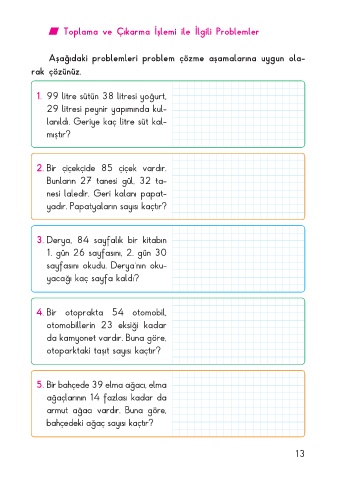 Toplama ve Çıkarma İşlemi ile İlgili Problemler
Aşağıdaki problemleri problem çözme aşamalarına uygun ola-
rak çözünüz.
1. 99 litre sütün 38 litresi yoğurt,
29 litresi peynir yapımında kul-
lanıldı. Geriye kaç litre süt kal-
mıştır?
2. Bir çiçekçide 85 çiçek vardır.
Bunların 27 tanesi gül, 32 ta-
nesi laledir. Geri kalanı papat-
yadır. Papatyaların sayısı kaçtır?
3. Derya, 84 sayfalık bir kitabın
1. gün 26 sayfasını, 2. gün 30
sayfasını okudu. Derya'nın oku-
yacağı kaç sayfa kaldı?
4. Bir otoprakta 54 otomobil,
otomobillerin 23 eksiği kadar
da kamyonet vardır. Buna göre,
otoparktaki taşıt sayısı kaçtır?
5. Bir bahçede 39 elma ağacı, elma
ağaçlarının 14 fazlası kadar da
armut ağacı vardır. Buna göre,
bahçedeki ağaç sayısı kaçtır?
13